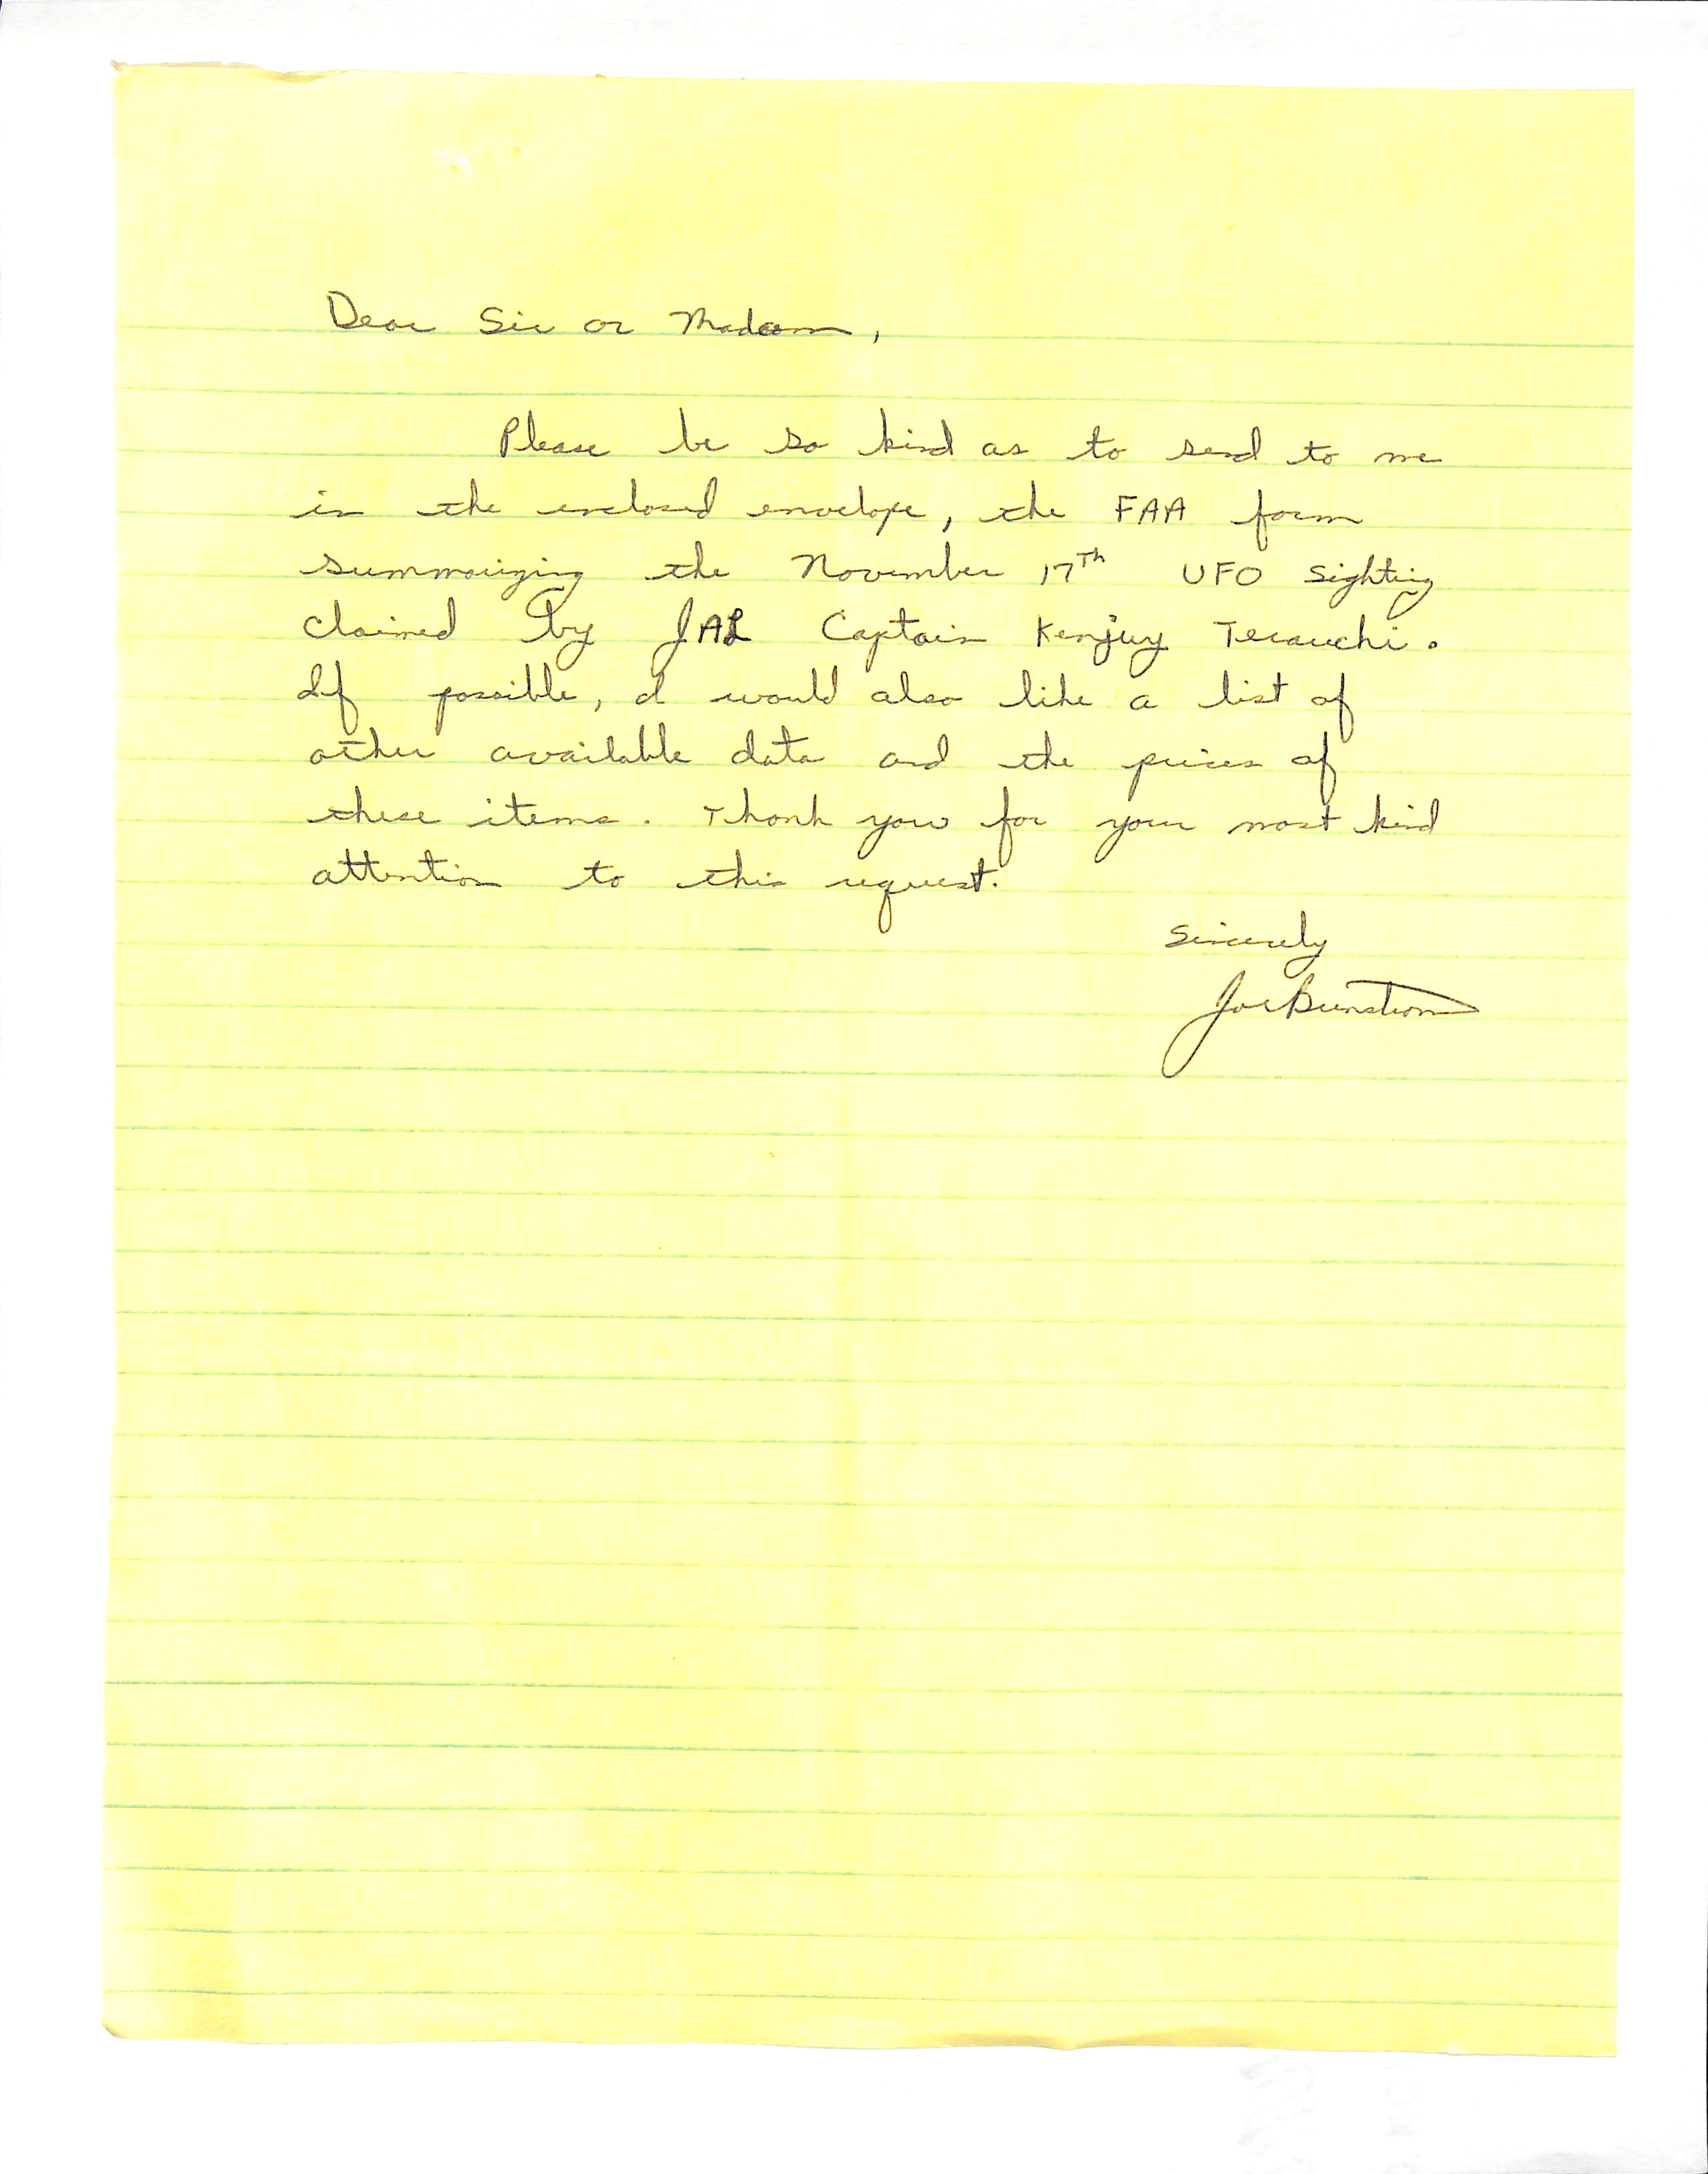 Dear Sir or Madam,
Please be so kind as to send to me
in the enclosed envelope, the FAA form
summarizing the November 17Th UFO sighting
claimed by JAL Captain Kenjuy Terauchi.
If possible, I would also like a list of
other available data and the prices of
these items. Thank you for your most kind
attention to this request.
Sincerely
Joe